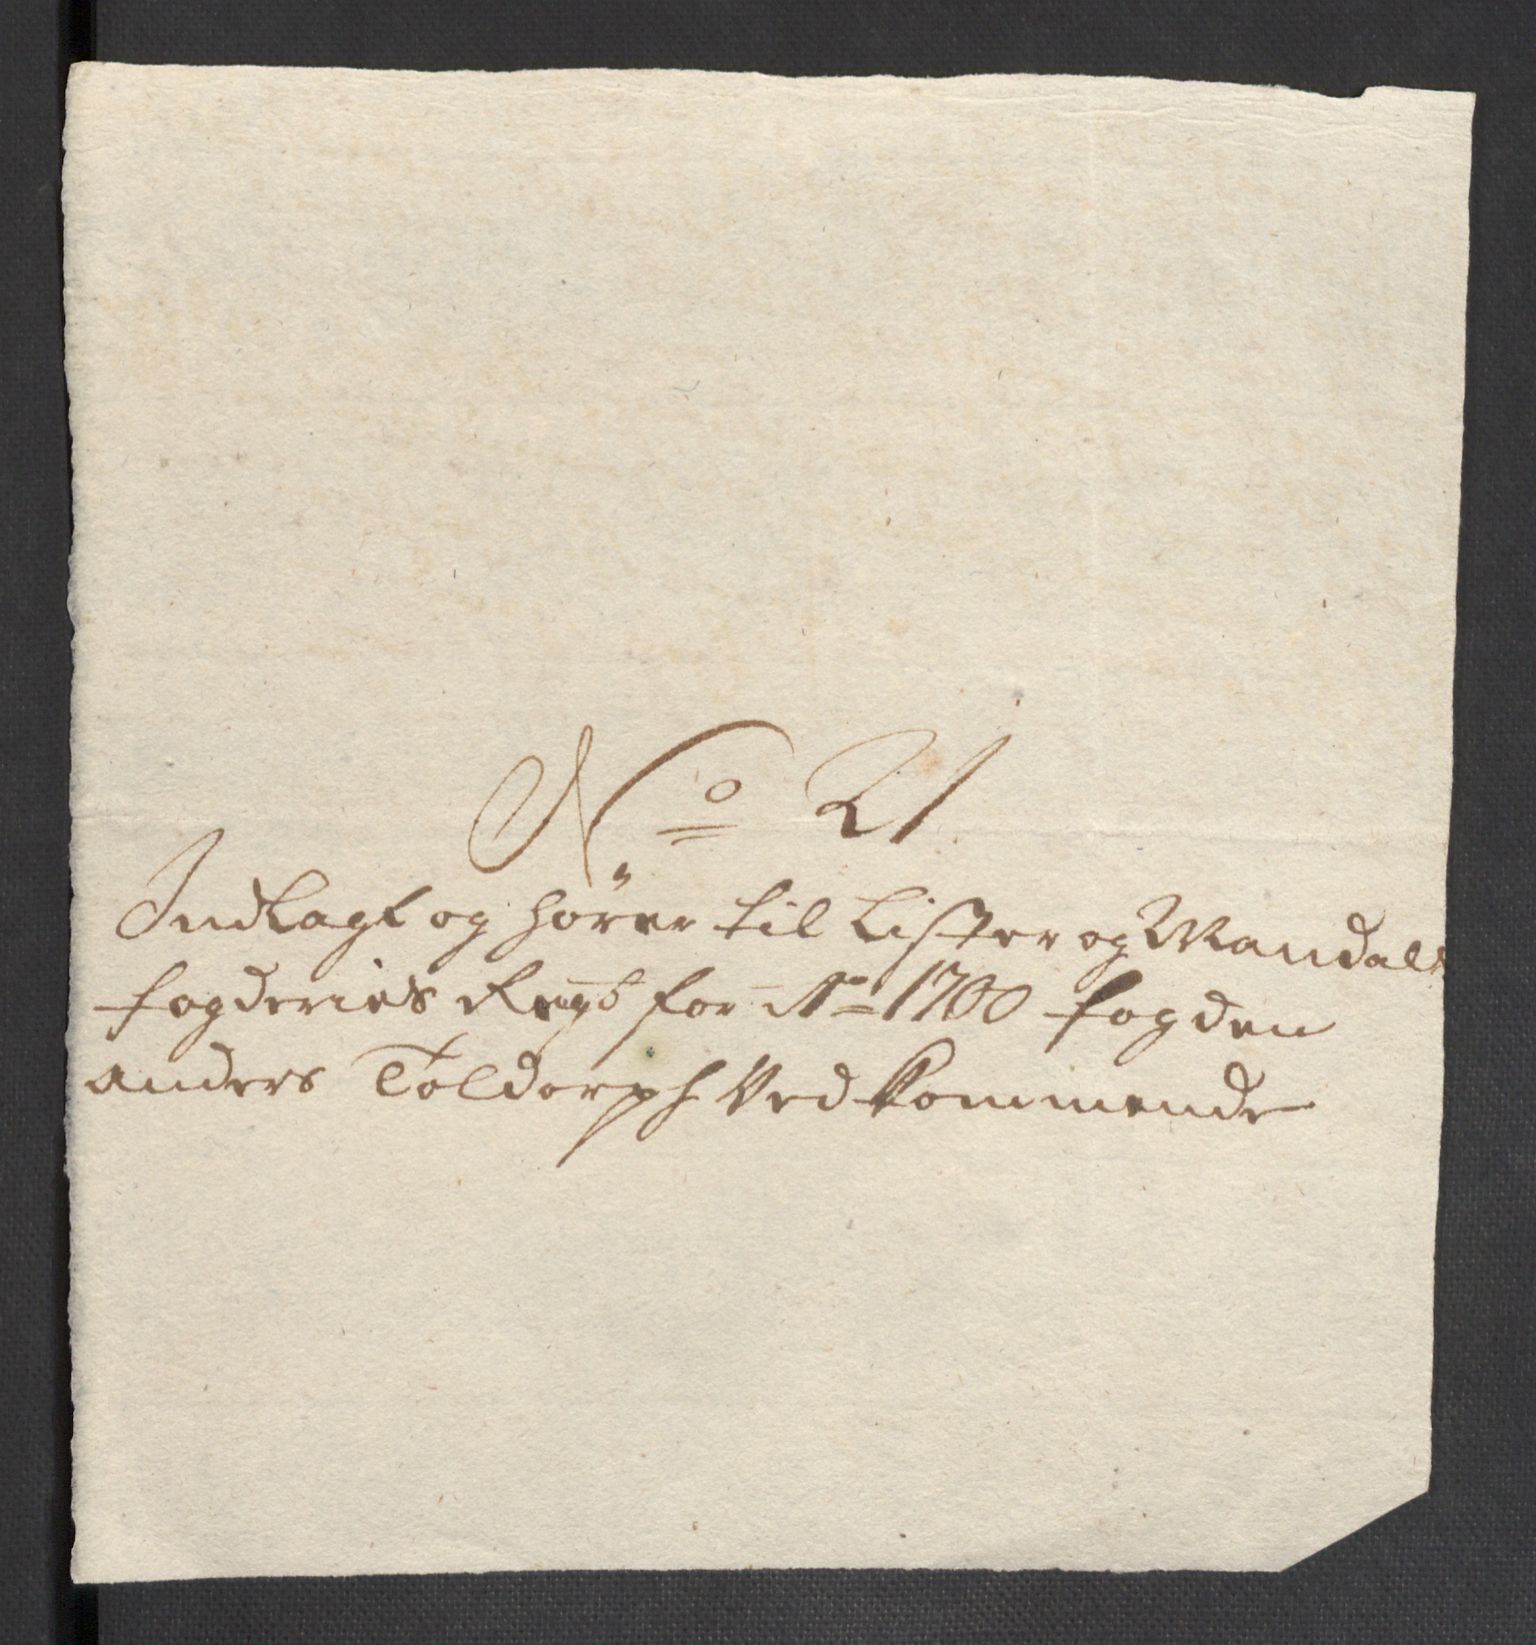 No 21
Indlagt og hører til Lister og Mandals
fogderies Regsb for Ao 1700 fogden
Anders Toldorph Vedkommende